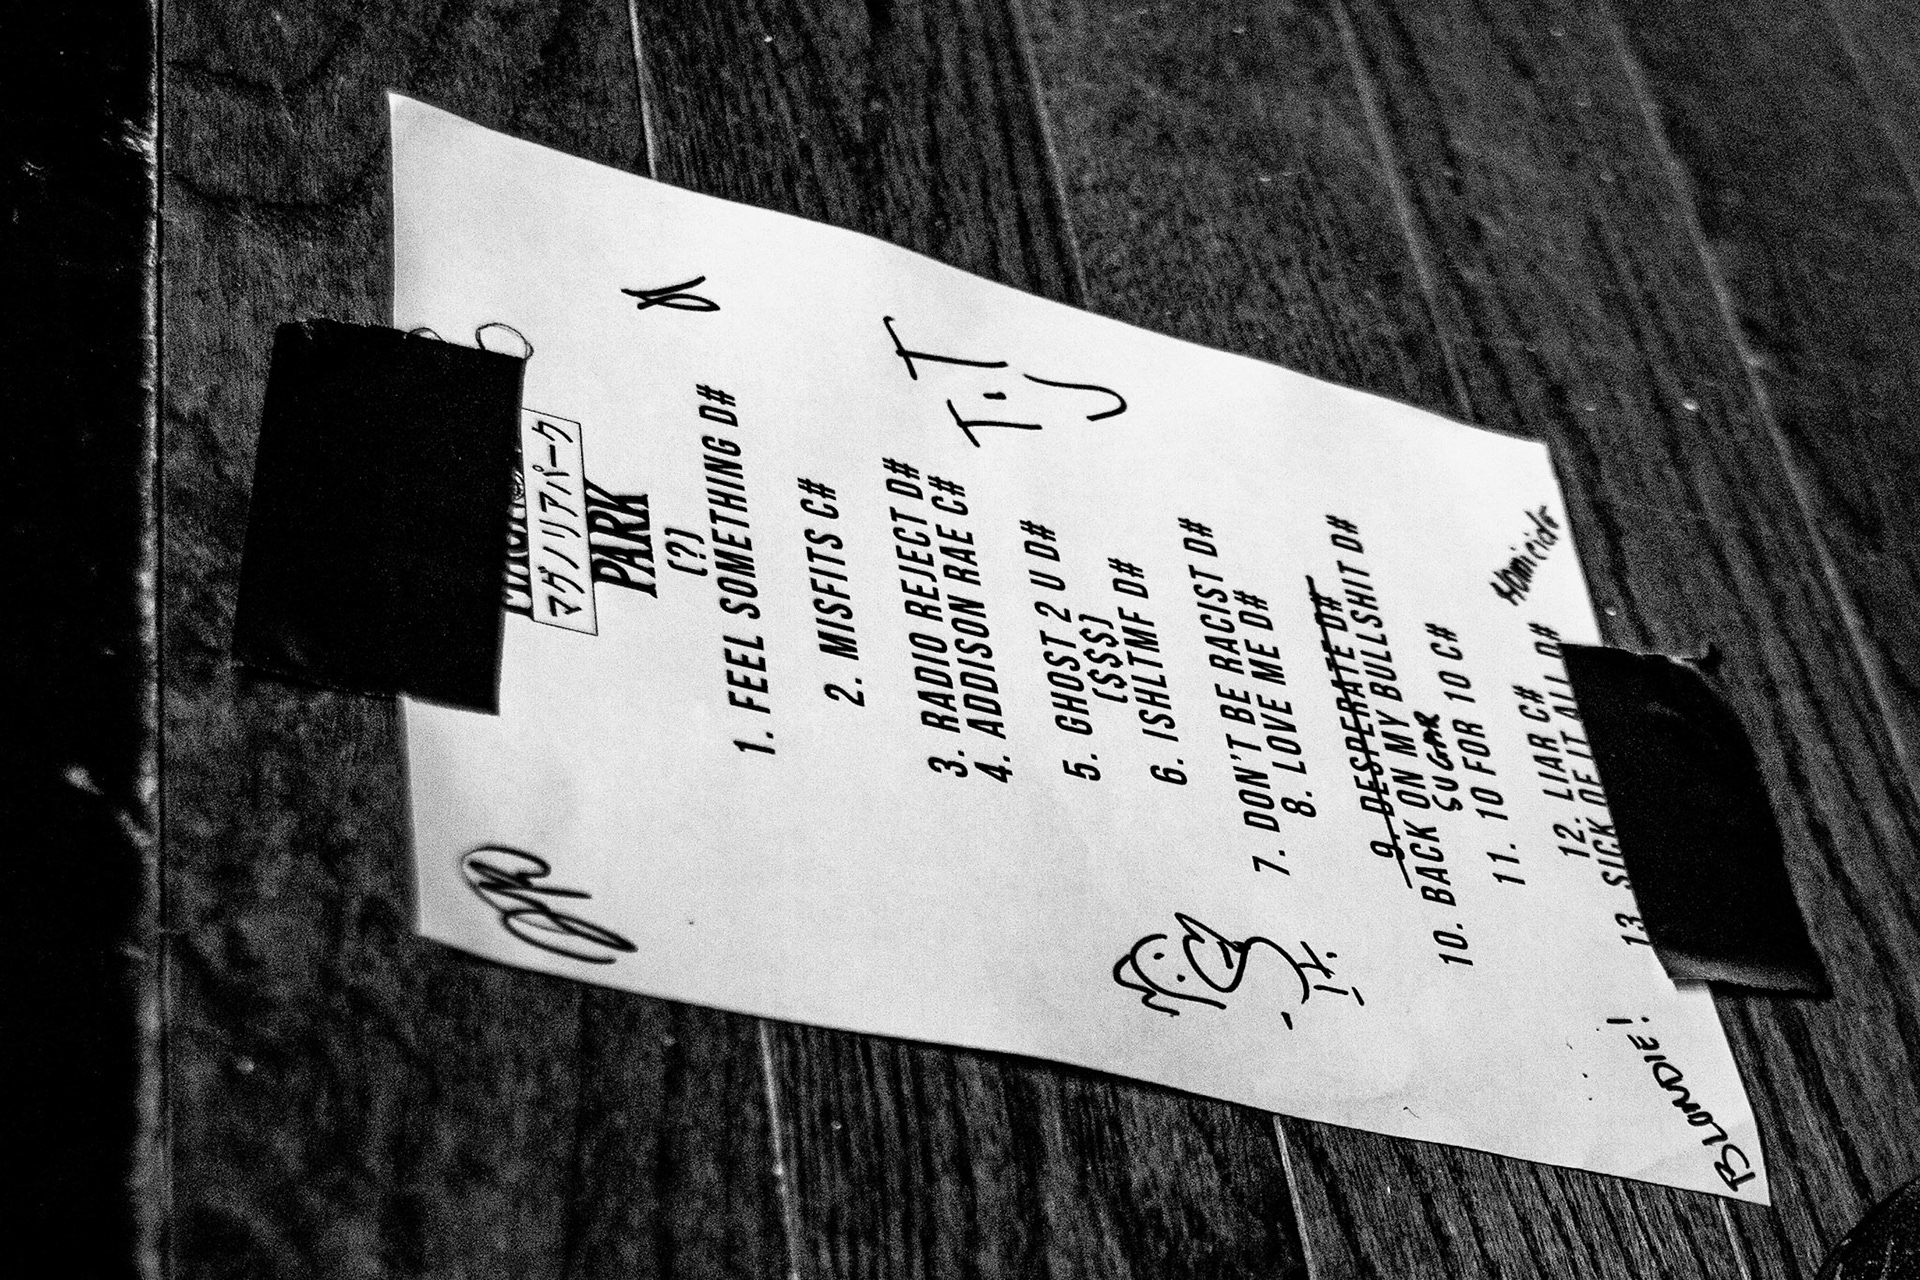 マグノリアパーク
PARK
(?)
1. FEEL SOMETHING D#
2. MISFITS C#
T.T
3. RADIO REJECT D#
4. ADDISON RAE C#
5. GHOST 2 U D#
($$$)
6. ISHLTMF D#
7. DON'T BE RACIST D#
8. LOVE ME D#
9. DESPERATE D#
10. BACK ON MY BULLSHIT D#
SUGAR
11. 10 FOR 10 C#
Homicide
12. LIAR C#
13. SICK OF IT ALL D#
BLONDIE!